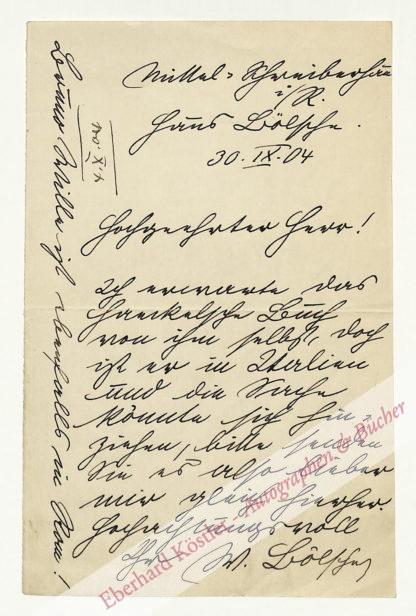 Mittel-Schreiberhau
i/R.
Haus Bölsche.
30. IX. 04
Hochgeehrter Herr!
Ich erwarte das
Haeckelsche Buch
von ihm selbst, doch
ist er in Italien
und die Sache
könnte sich hin-
ziehen, bitte senden
Sie es also lieber
mir gleich hierher.
Hochachtungsvoll
Ihr W. Bölsche
Bruno Wille ist ebenfalls in Rom!
Eberhard Köstler Autographen & Bücher